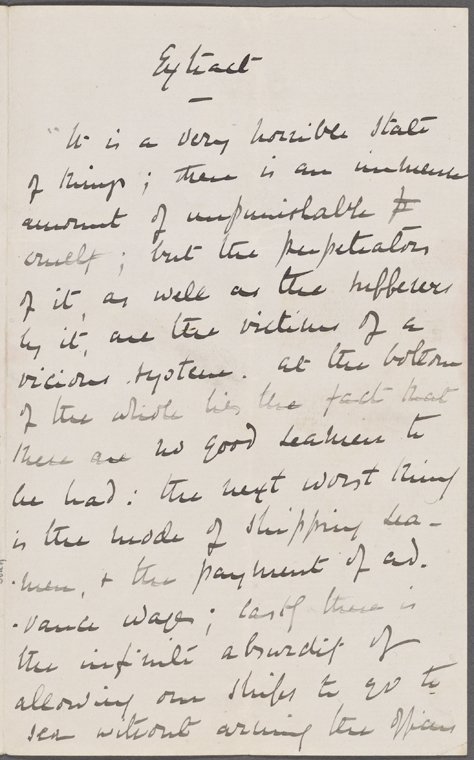 Extract
"It is a very horrible state
of things; there is an immense
amount of unpunishable
cruelty; but the perpetrators
of it, as well as the sufferers
by it, are the victims of a
vicious system. At the bottom
of the whole lies the fact that
there are no good seamen to
be had: the next worst thing
is the mode of shipping sea-
-men, & the payment of ad-
-vance wages; lastly there is
the infinite absurdity of
allowing our ships to go to
sea without arming the officers